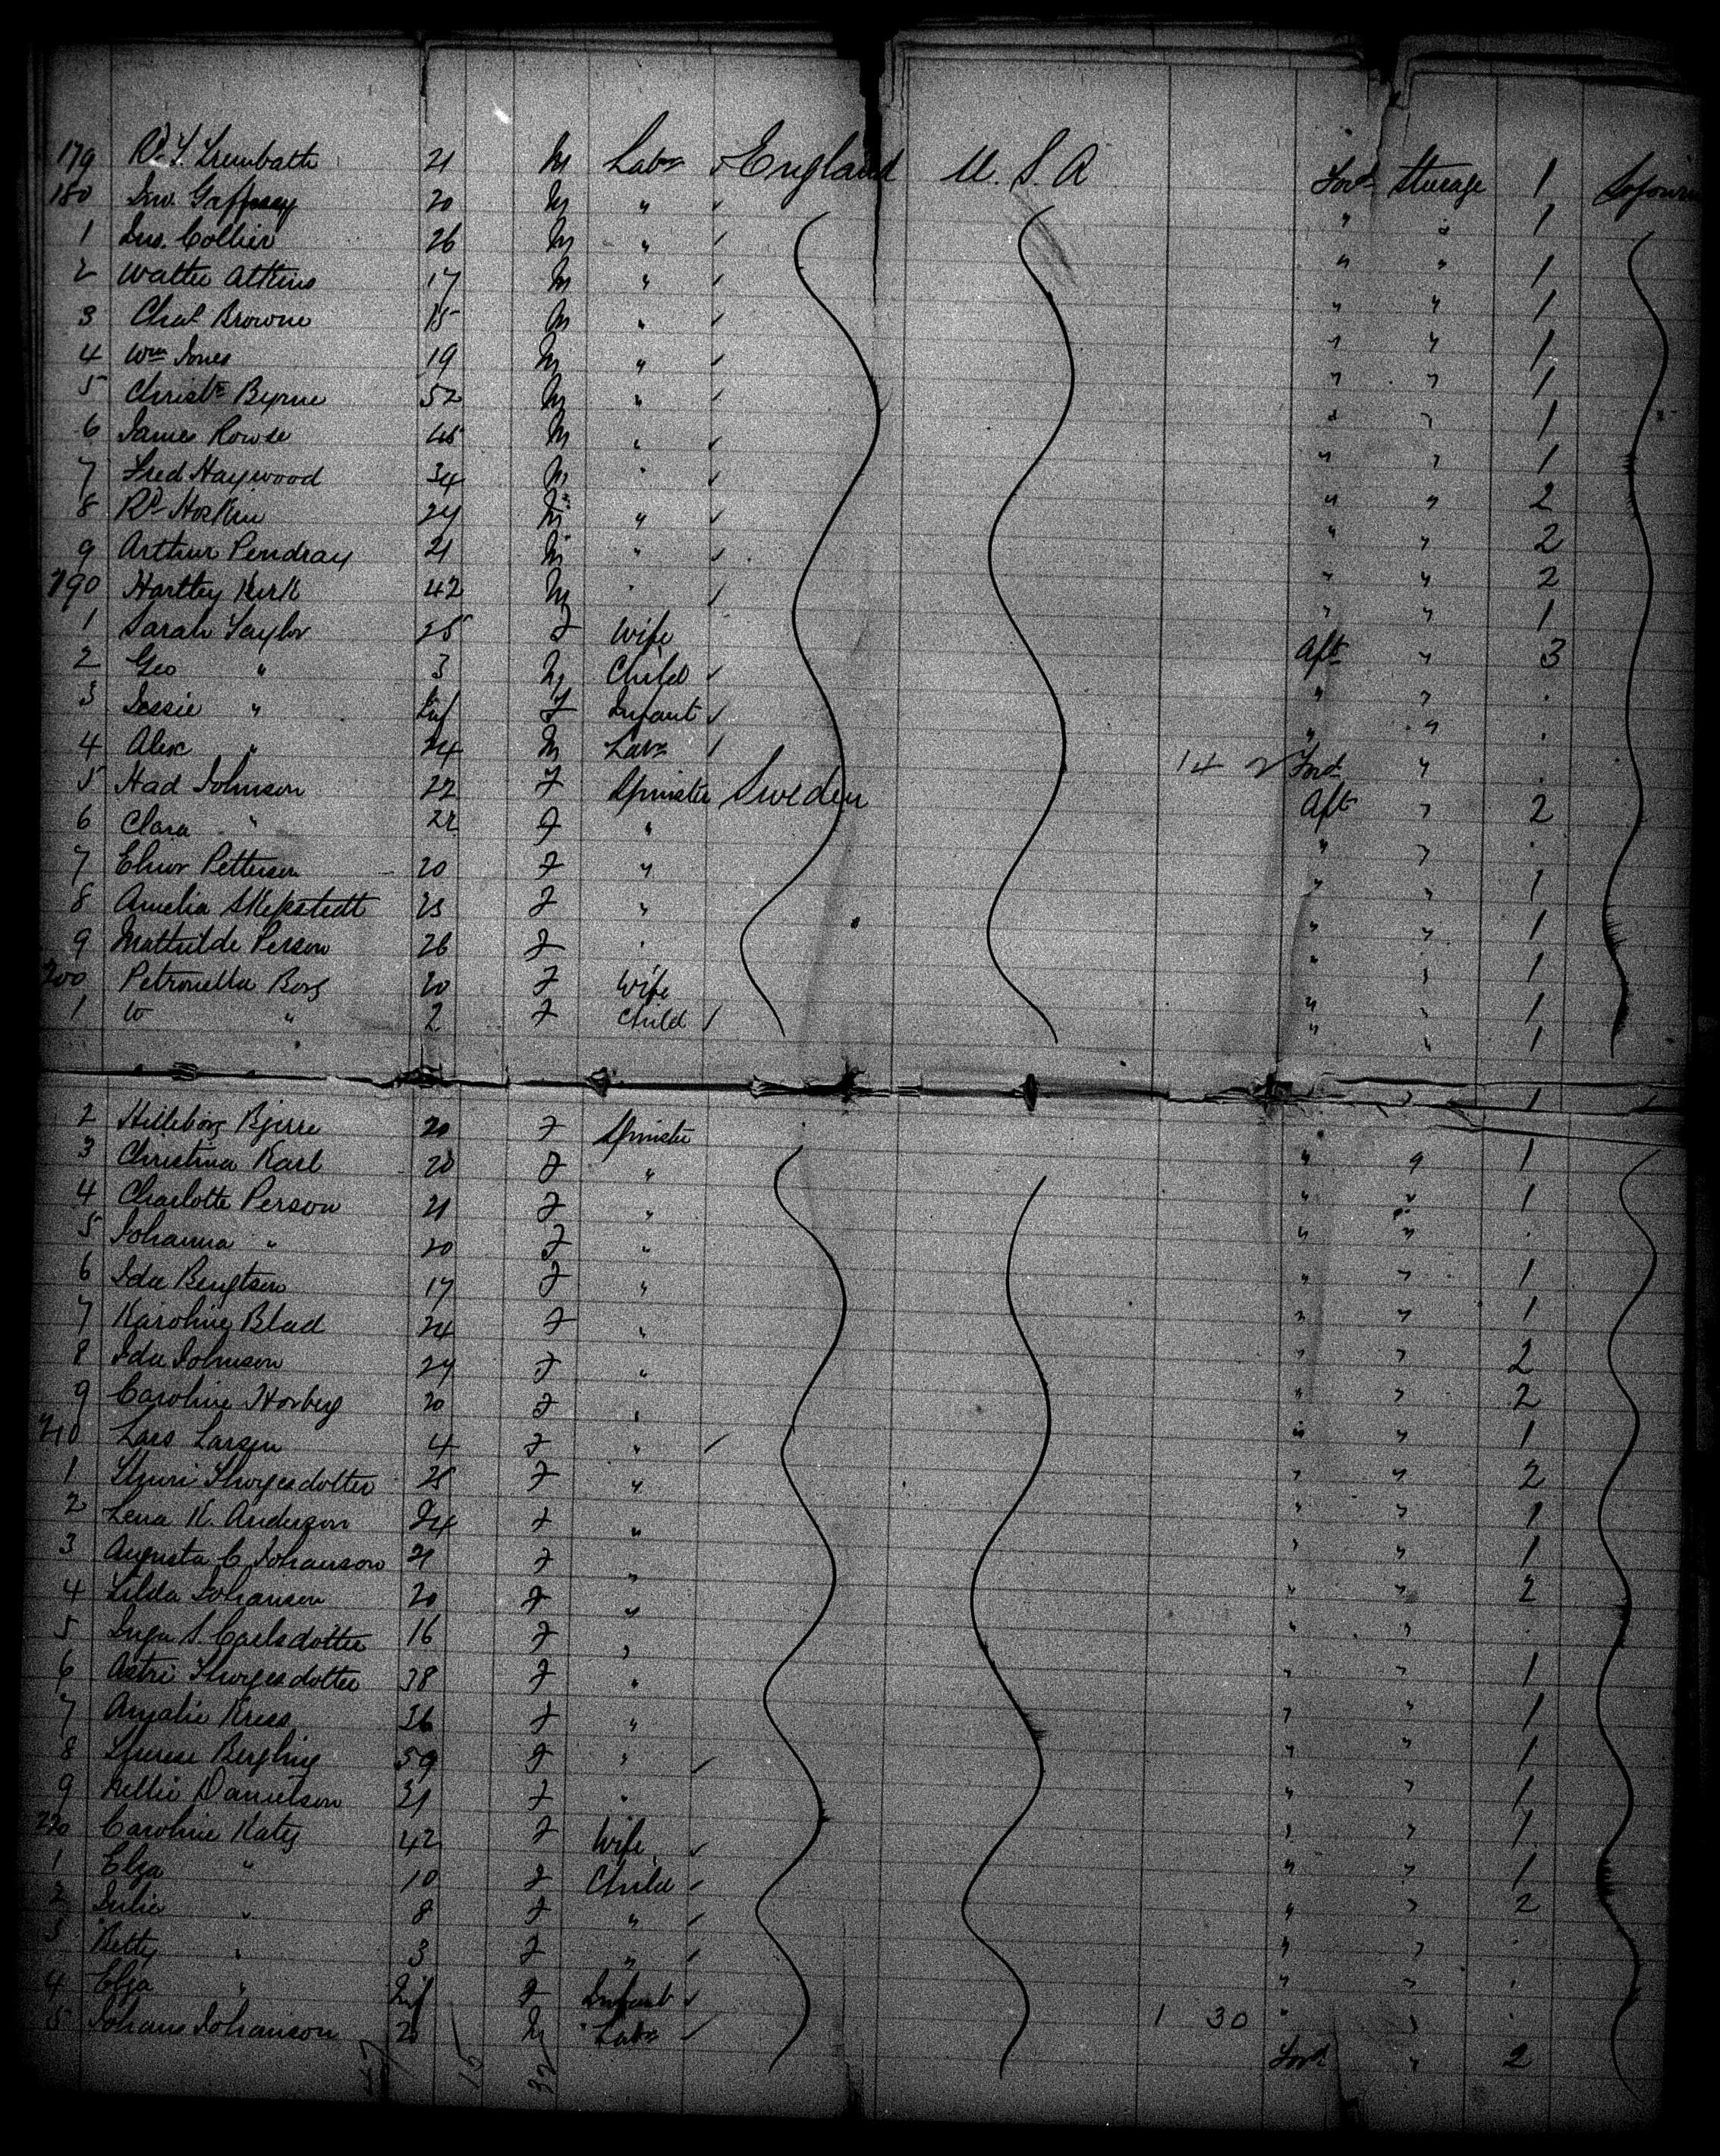 179 Rd. T. Trembath 21 M Labr England U.S.A Ford Sterage 1 Sojourn
180 Jno. Gaffney 20 M " " " 1
1 Jno. Collier 26 M " " " 1
2 Walter Atkins 17 M " " " 1
3 Chas. Browne 15 M " " " 1
4 Wm Jones 19 M " " " 1
5 Christr Byrne 52 M " " " 1
6 James Rowse 45 M " " " 1
7 Fred Haywood 34 M " " " 2
8 Rd Hoskin 24 M " " " 2
9 Arthur Pendray 21 M " " " 2
190 Hartley Kirk 42 M " " " 1
1 Sarah Taylor 25 F Wife Aft " 3
2 Geo " 3 M Child " " .
3 Jessie " Inf F Infant " " .
4 Alex " 24 M Labr 14 2 Ford " .
5 Had Johnson 22 F Spinster Sweden Aft " 2
6 Clara " 22 F " " " .
7 Petterson 20 F " " " 1
8 Amelia Skepstedt 23 F " " " 1
9 Mathilde Person 26 F " " " 1
200 Petronella Borg 20 F Wife " " 1
1 W " 2 F Child " " 1
2 Hilleborg Bjerre 20 F Spinster " 1
3 Christina Karl 20 F " " " 1
4 Charlotte Person 21 F " " " 1
5 Johanna " 20 F " " " .
6 Ida Bengtson 17 F " " " 1
7 Karoline Blad 24 F " " " 1
8 Ida Johnson 24 F " " " 2
9 Caroline Horberg 20 F " " " 2
210 Lars Larsen 4 F " " " 1
1 Thoresdotter 25 F " " " 2
2 Lena K. Anderson 24 F " " " 1
3 Augusta C Johanson 21 F " " " 1
4 Tilda Johanson 20 F " " " 2
5 Inga S. Carlsdotter 16 F " " " .
6 Astri Thoresdotter 38 F " " " 1
7 Amalie Kress 36 F " " " 1
8 Berghing 59 F " " " 1
9 Nellie Danielson 21 F " " " 1
220 Caroline Katz 42 F Wife " " 1
1 Elza " 10 F Child " " 1
2 Julie " 8 F " " " 2
3 Betty " 3 F " " " .
4 Elza " Inf F Infant " " .
5 Johans Johanson 20 M Labr 1 30 " " .
Ford " 2
47 15 32